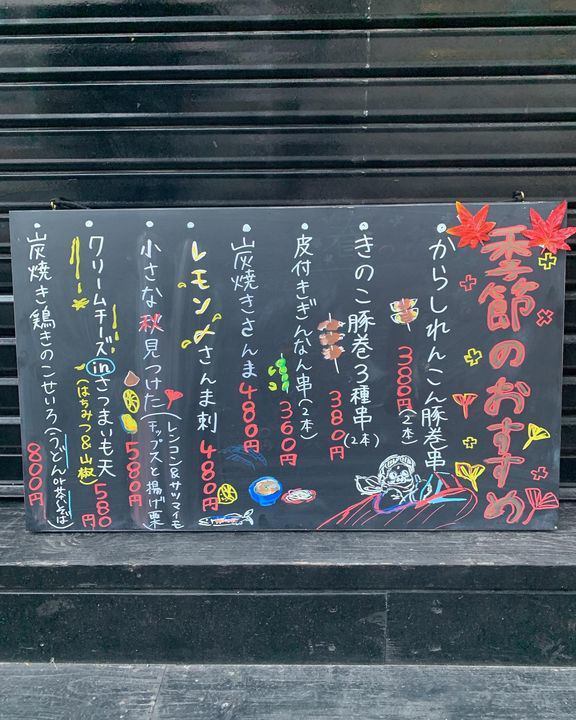 季節のおすすめ
・からしれんこん豚巻串
380円(2本)
・きのこ豚巻3種串
(2本)
380円
・皮付きぎんなん串(2本)
360円
・炭焼きさんま480円
・レモン〆さんま刺
480円
・小さな秋見つけた(レンコン&サツマイモチップスと揚げ栗)
580円
・クリームチーズinさつまいも天
(はちみつ&山椒)
580円
・炭焼き鶏きのこせいろ(うどんor茶そば)
800円